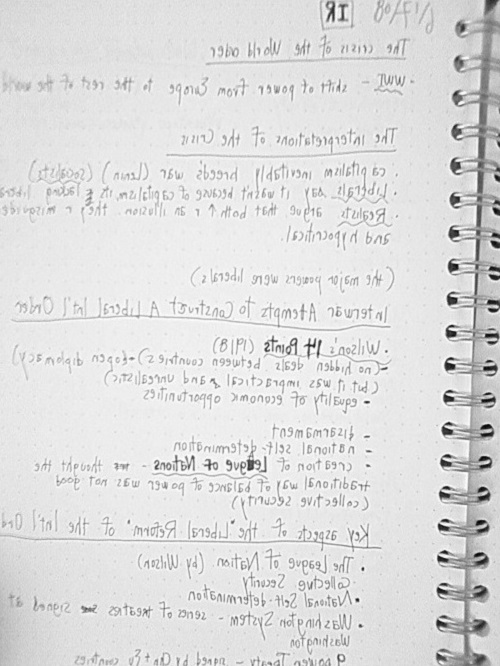 IR
The crisis of the World order
• WWI - shift of power from Europe to the rest of the world
The Interpretations of the Crisis
• capitalism inevitably breeds war (Lenin) (socialists)
• Liberals say it wasn't because of capitalism, its lacking libera
• Realists argue that both ↑ r an illusion. they r misguide
and hypocritical.
(the major powers were liberals)
Interwar Attempts to Construct A Liberal Int'l Order
• Wilson's 14 Points (1918)
- (no hidden deals between contries) - (open diplomacy)
(but it was impractical and unrealistic)
- equality of economic opportunities
- disarmament
- national self-determination
- creation of League of Nations - thought the
traditional way of balance of power was not good
(collective security)
Key aspects of the "Liberal Reform" of the Int'l Ord
• The League of Nation (by Wilson)
Collective Security
• National Self-determination
• Washington System - series of treaties signed at
Washington
9 power Treaty - signed by